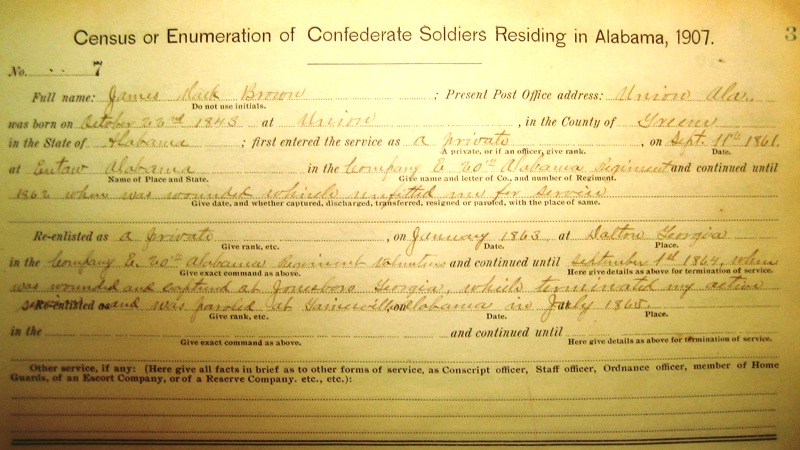 Census or Enumeration of Confederate Soldiers Residing in Alabama, 1907.
3
No. 7
Full name: James Mack Brown ; Present Post Office address: Union Ala.
Do not use initials.
was born on October 22nd 1843 at Union , in the County of Greene
in the State of Alabama ; first entered the service as a private , on Sept. 11th 1861,
A private, or if an officer, give rank. Date.
at Eutaw Alabama in the Company E. 20th Alabama Regiment and continued until
Name of Place and State. Give name and letter of Co., and number of Regiment.
1862 when was wounded which unfitted me for service
Give date, and whether captured, discharged, transferred, resigned or paroled, with the place of same.
Re-enlisted as a private , on January 1863 at Dalton Georgia
Give rank, etc. Date. Place.
in the Company E. 20th Alabama Regiment Volunteers and continued until September 1st 1864, when
Give exact command as above. Here give details as above for termination of service.
was wounded and captured at Jonesboro Georgia, which terminated my active
Re-enlisted as and was paroled at Gainesville, on Alabama in July 1865.
Give rank, etc. Date. Place.
in the and continued until
Give exact command as above. Here give details as above for termination of service.
Other service, if any: (Here give all facts in brief as to other forms of service, as Conscript officer, Staff officer, Ordnance officer, member of Home
Guards, of an Escort Company, or of a Reserve Company. etc., etc.):